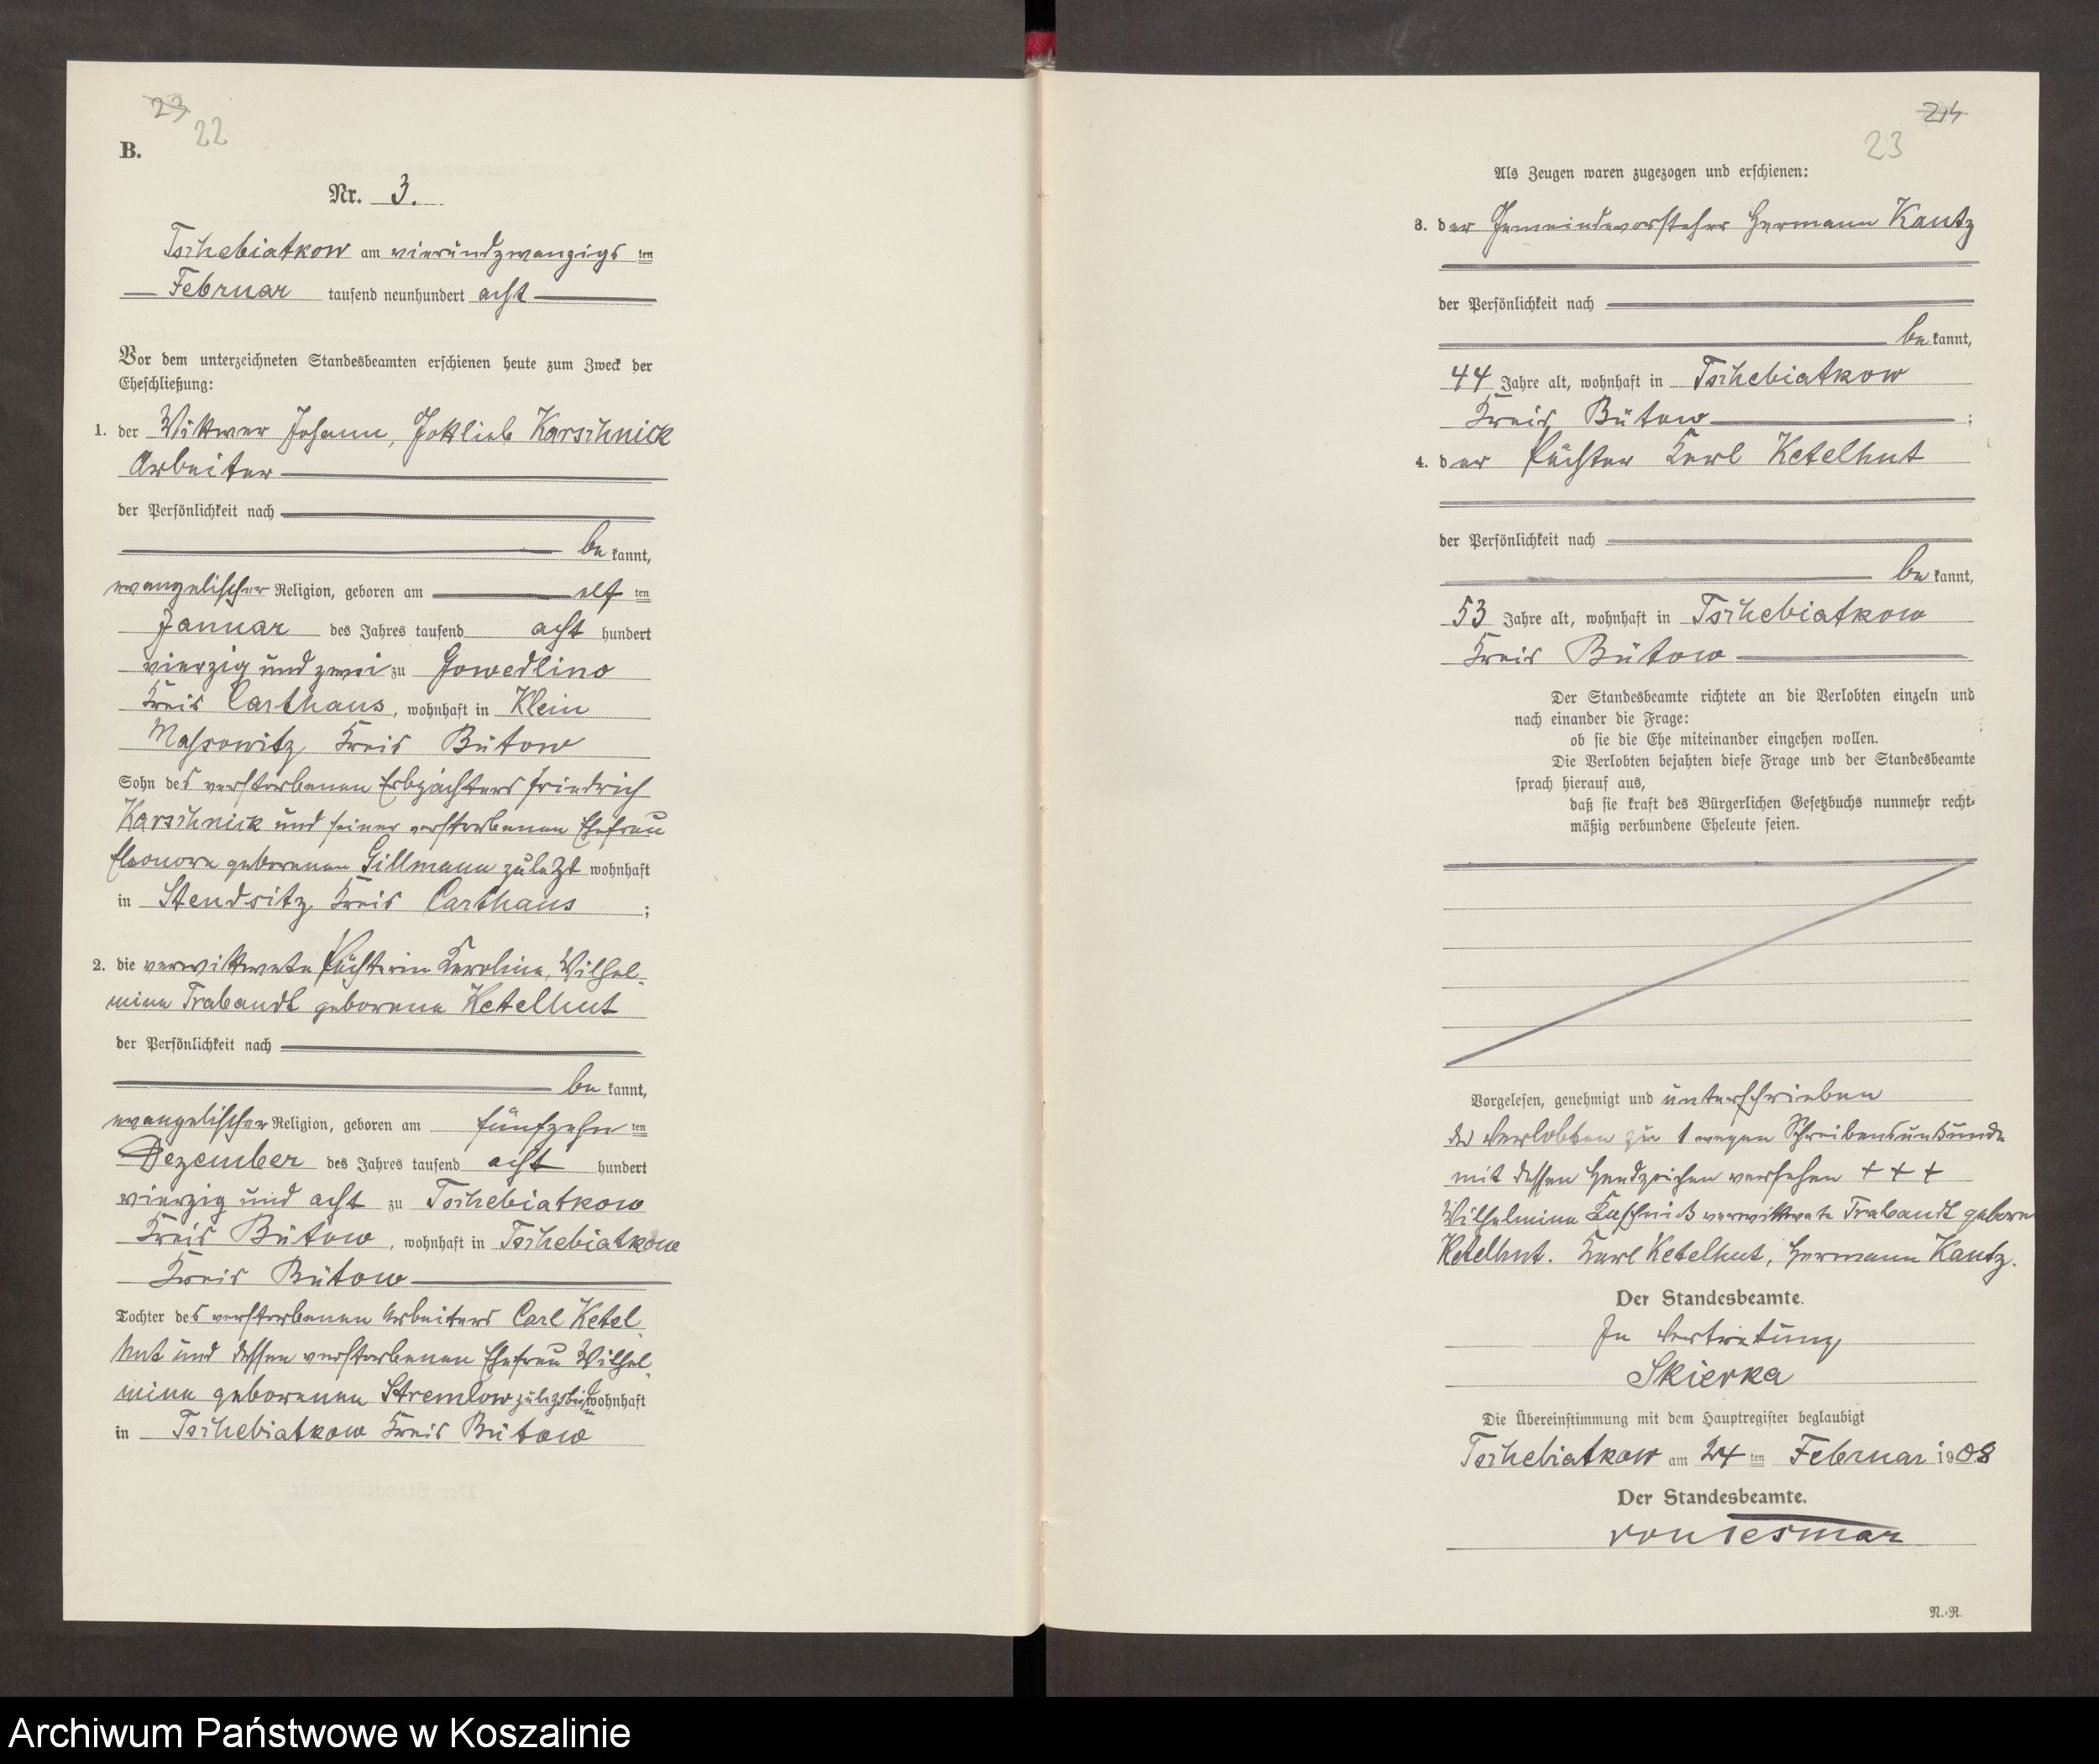 23
22
B.
Nr. 3.
Tschebiatkow am vierundzwanzigs ten
Februar tausend neunhundert acht
Vor dem unterzeichneten Standesbeamten erschienen heute zum Zweck der
Eheschließung:
1. der Wittwer Johann, Gottlieb Karschnick
Arbeiter
der Persönlichkeit nach
be kannt,
evangelischer Religion, geboren am elf ten
Januar des Jahres tausend acht hundert
vierzig und zwei zu Gowedlino
Kreis Carthaus, wohnhaft in Klein
Massowitz Kreis Bütow
Sohn des verstorbenen Erbpächters Friedrich
Karschnick und seiner verstorbenen Ehefrau
Eleonore geborenen Gillmann zuletzt wohnhaft
in Stendsitz Kreis Carthaus ;
2. die verwittwete Pächterin Karoline, Wilhel-
mine Trabandt geborene Ketelhut
der Persönlichkeit nach
be kannt,
evangelischer Religion, geboren am fünfzehn ten
Dezember des Jahres tausend acht hundert
vierzig und acht zu Tschebiatkow
Kreis Bütow, wohnhaft in Tschebiatkow
Kreis Bütow
Tochter des verstorbenen Arbeiters Carl Ketel-
hut und dessen verstorbenen Ehefrau Wilhel-
mine geborenen Stremlow wohnhaft
in Tschebiatkow Kreis Bütow
24
23
Als Zeugen waren zugezogen und erschienen:
3. der Gemeindevorsteher Hermann Kautz
der Persönlichkeit nach
be kannt,
44 Jahre alt, wohnhaft in Tschebiatkow
Kreis Bütow ;
4. der Pächter Karl Ketelhut
der Persönlichkeit nach
be kannt,
53 Jahre alt, wohnhaft in Tschebiatkow
Kreis Bütow
Der Standesbeamte richtete an die Verlobten einzeln und
nach einander die Frage:
ob sie die Ehe miteinander eingehen wollen.
Die Verlobten bejahten diese Frage und der Standesbeamte
sprach hierauf aus,
daß sie kraft des Bürgerlichen Gesetzbuchs nunmehr recht-
mäßig verbundene Eheleute seien.
Vorgelesen, genehmigt und unterschrieben
Verlobten zu 1 wegen Schreibensunkunde
mit dessen Handzeichen versehen + + +
Wilhelmine verwittwete Trabandt geborne
Ketelhut. Karl Ketelhut, Hermann Kautz.
Der Standesbeamte.
In Vertretung
Skierka
Die Übereinstimmung mit dem Hauptregister beglaubigt
Tschebiatkow am 24 ten Februar 1908
Der Standesbeamte.
von Tesmar
N.-R.
Archiwum Państwowe w Koszalinie